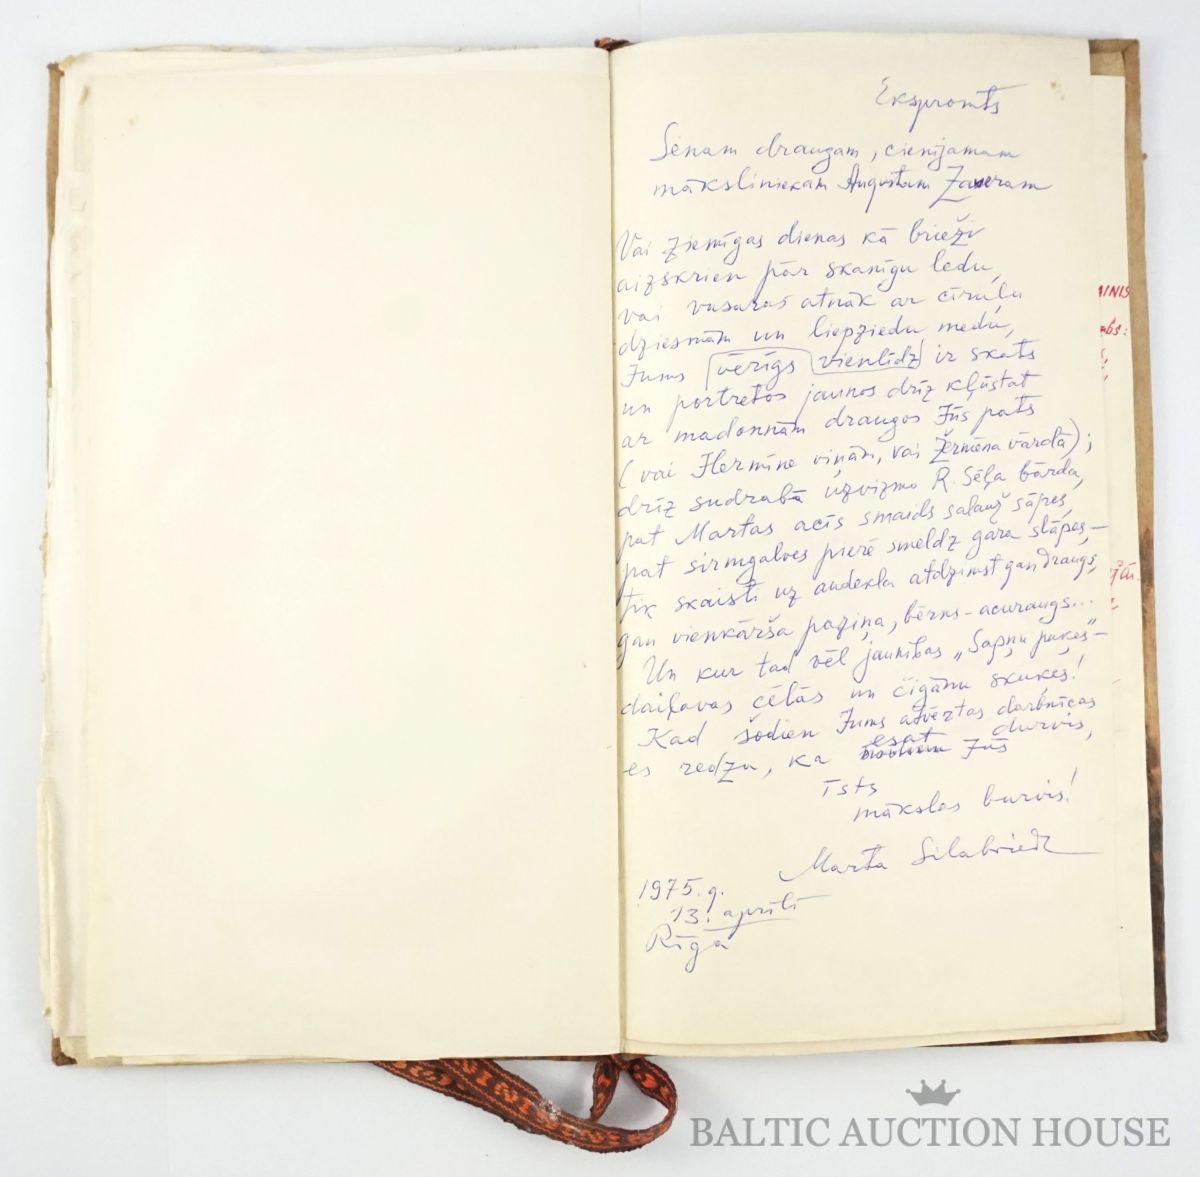 Eksproints
Senam draugam, cienījamam
māksliniekam Augustam Zaueram
Vai ziemīgas dienas kā brieži
aizskrien pār skanīgu ledu,
vai vasaras atnāk ar cīruļu
dziesmām un liepziedu medu,
Jums vērīgs vienlīdz ir skats
un portretos jaunos drīz kļūstat
ar madonnām draugos Jūs pats
(vai Hermīne viņām, vai Žermēna vārdā);
drīz sudrabā uzvizmo R. Sēļa bārda,
pat Martas acīs smaids salauž sāpes,
pat sirmgalves pierē smeldz gara slāpes, –
tik skaisti uz audekla atdzimst gan draugs,
gan vienkārša paziņa, bērns – acuraugs...
Un kur tad vēl jaunības „Sapņu puķes" –
daiļavas cēlās un čigānu skuķes!
Kad šodien Jums atvērtas darbnīcas
durvis,
es redzu, ka esat Jūs
īsts
mākslas burvis!
Marta Silabriedе
1975. g.
13. aprīlī
Rīgā
AINIS